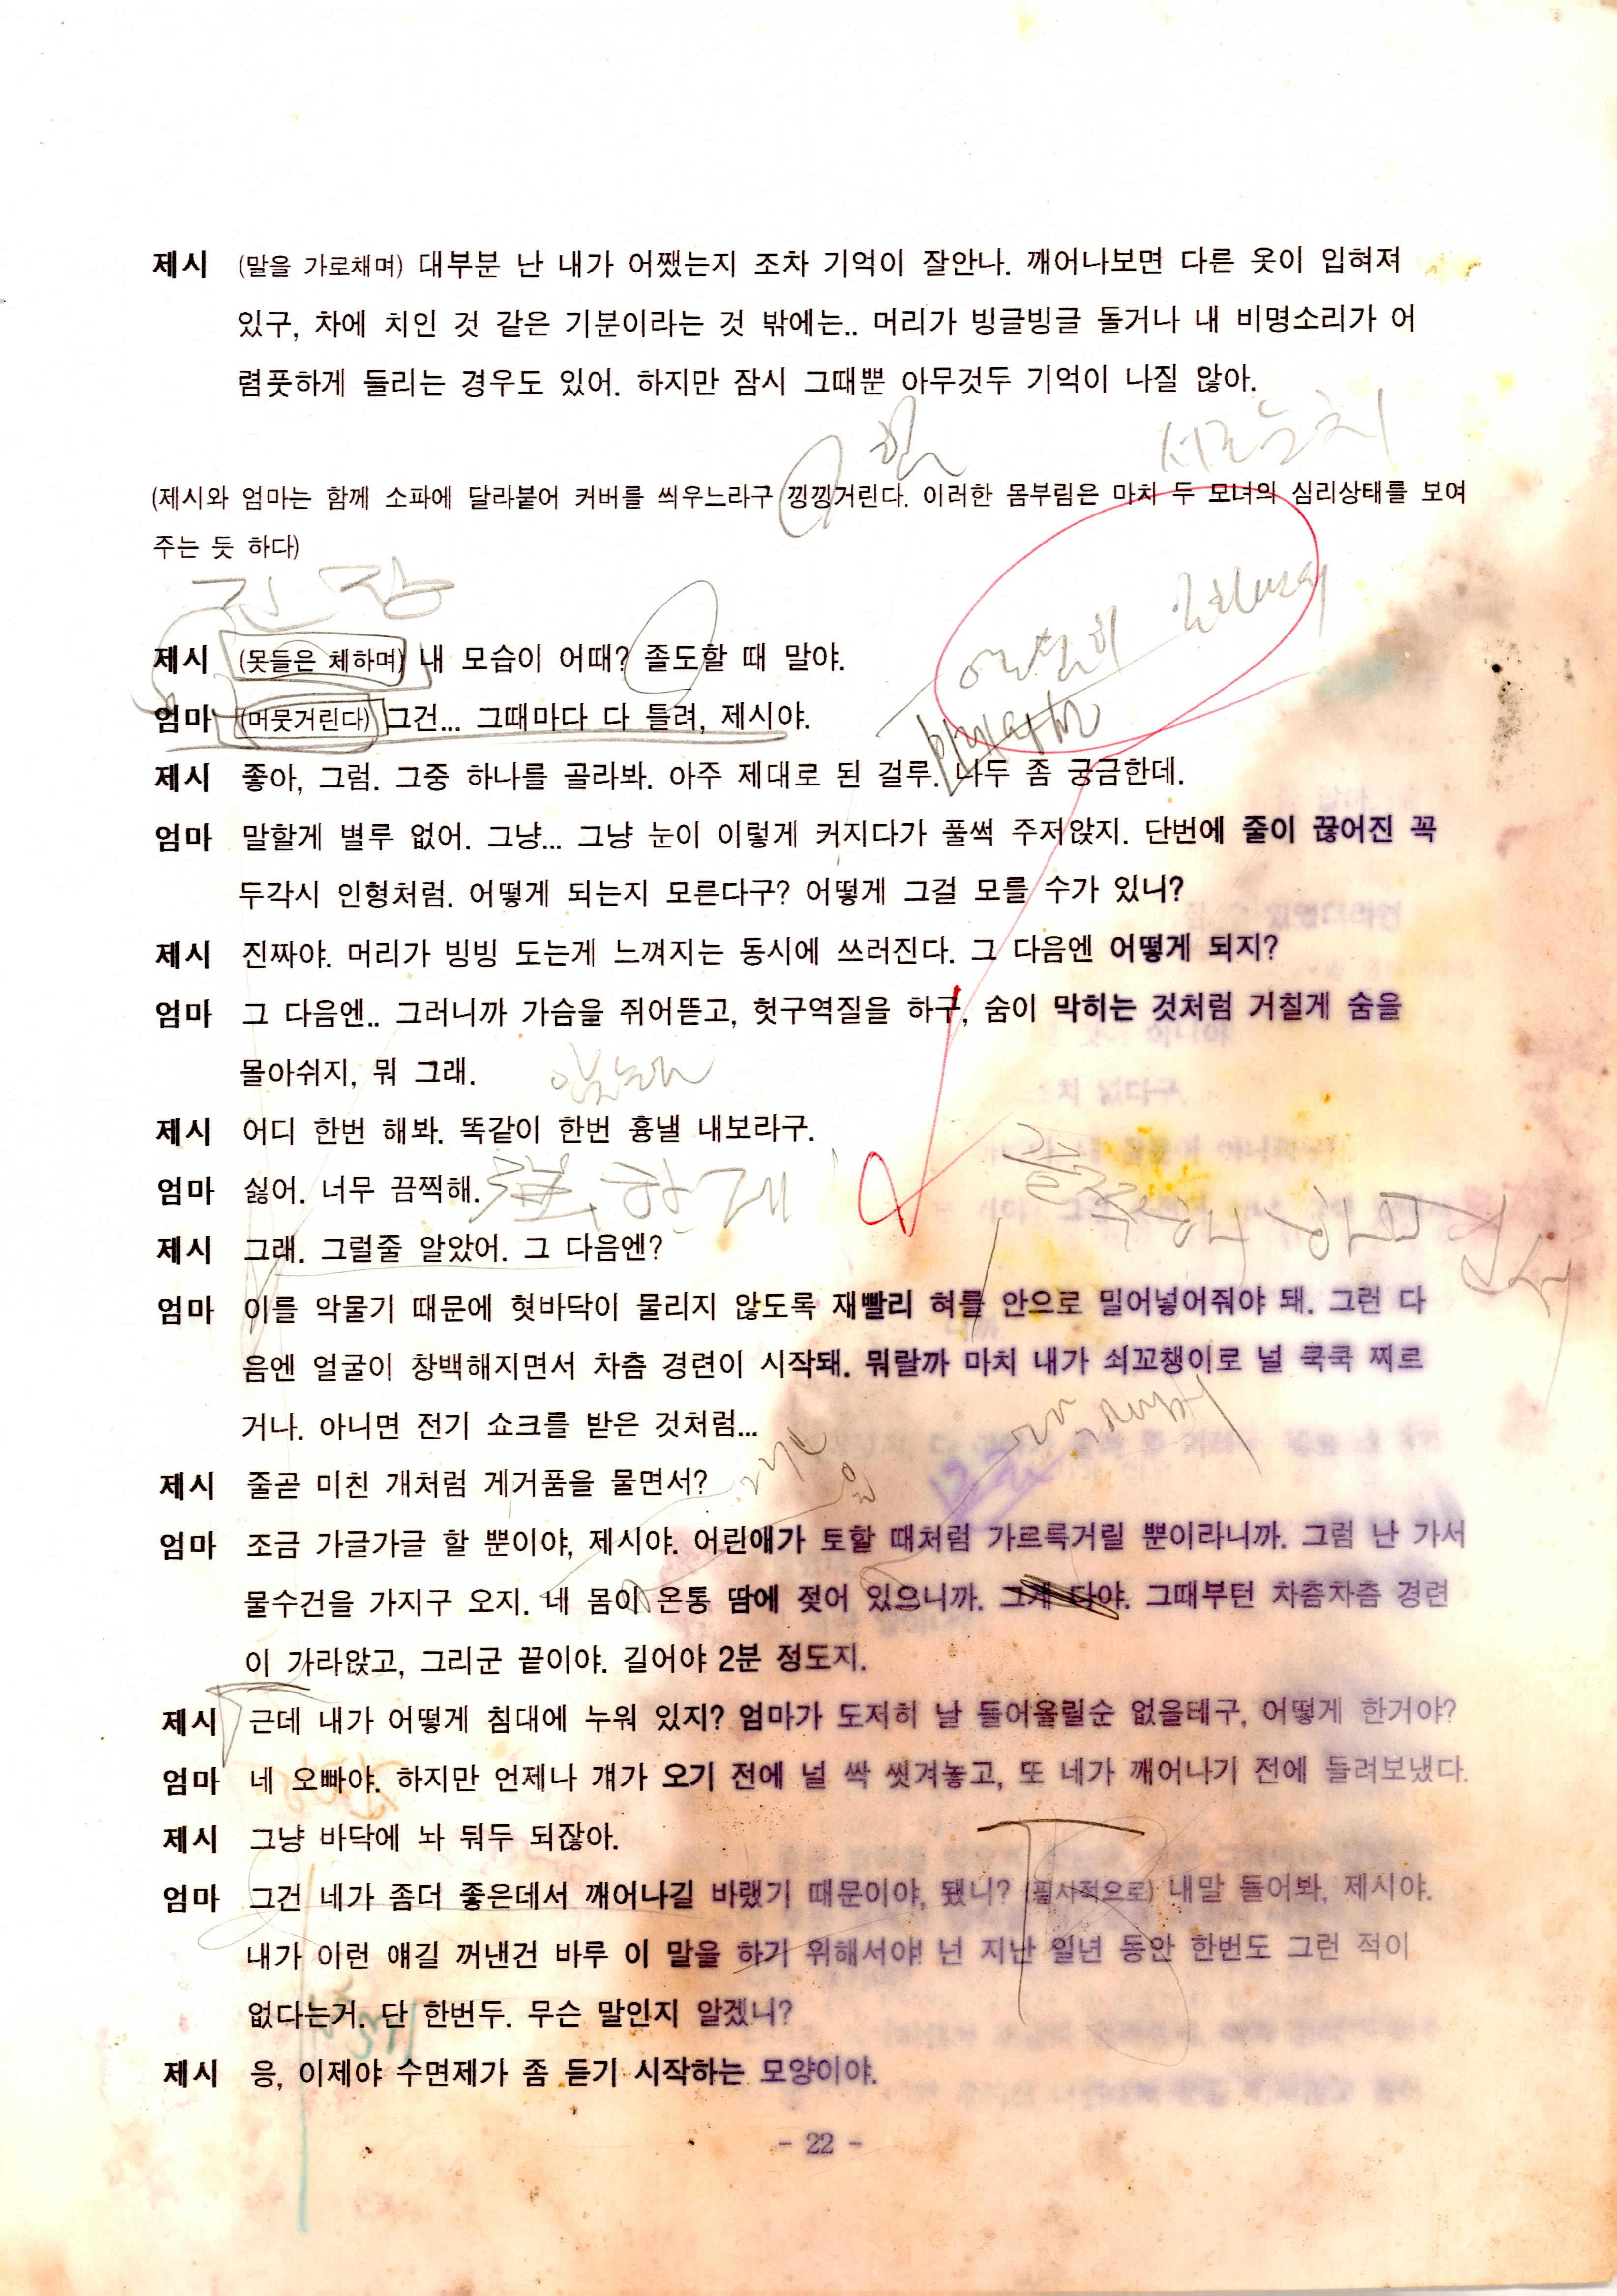 제시 (말을 가로채며) 대부분 난 내가 어쨌는지 조차 기억이 잘안나. 깨어나보면 다른 옷이 입혀져
있구, 차에 치인 것 같은 기분이라는 것 밖에는.. 머리가 빙글빙글 돌거나 내 비명소리가 어
렴풋하게 들리는 경우도 있어. 하지만 잠시 그때뿐 아무것두 기억이 나질 않아.
서로 눈치
(제시와 엄마는 함께 소파에 달라붙어 커버를 씌우느라구 낑낑거린다. 이러한 몸부림은 마치 두 모녀의 심리상태를 보여
주는 듯 하다)
긴장
제시 (못들은 체하며) 내 모습이 어때? 졸도할 때 말야.
엄마 (머뭇거린다) 그건... 그때마다 다 틀려, 제시야.
제시 좋아, 그럼. 그중 하나를 골라봐. 아주 제대로 된 걸루. 나두 좀 궁금한데.
엄마 말할게 별루 없어. 그냥... 그냥 눈이 이렇게 커지다가 풀썩 주저앉지. 단번에 줄이 끊어진 꼭
두각시 인형처럼. 어떻게 되는지 모른다구? 어떻게 그걸 모를 수가 있니?
제시 진짜야. 머리가 빙빙 도는게 느껴지는 동시에 쓰러진다. 그 다음엔 어떻게 되지?
엄마 그 다음엔.. 그러니까 가슴을 쥐어뜯고, 헛구역질을 하구, 숨이 막히는 것처럼 거칠게 숨을
몰아쉬지, 뭐 그래.
제시 어디 한번 해봐. 똑같이 한번 흉낼 내보라구.
엄마 싫어. 너무 끔찍해.
제시 그래. 그럴줄 알았어. 그 다음엔?
엄마 이를 악물기 때문에 혓바닥이 물리지 않도록 재빨리 혀를 안으로 밀어넣어줘야 돼. 그런 다
음엔 얼굴이 창백해지면서 차츰 경련이 시작돼. 뭐랄까 마치 내가 쇠꼬챙이로 널 쿡쿡 찌르
거나. 아니면 전기 쇼크를 받은 것처럼...
제시 줄곧 미친 개처럼 게거품을 물면서?
엄마 조금 가글가글 할 뿐이야, 제시야. 어린애가 토할 때처럼 가르륵거릴 뿐이라니까. 그럼 난 가서
물수건을 가지구 오지. 네 몸이 온통 땀에 젖어 있으니까. 그게 다야. 그때부턴 차츰차츰 경련
이 가라앉고, 그리군 끝이야. 길어야 2분 정도지.
제시 근데 내가 어떻게 침대에 누워 있지? 엄마가 도저히 날 들어올릴순 없을테구, 어떻게 한거야?
엄마 네 오빠야. 하지만 언제나 걔가 오기 전에 널 싹 씻겨놓고, 또 네가 깨어나기 전에 들려보냈다.
제시 그냥 바닥에 놔 둬두 되잖아.
엄마 그건 네가 좀더 좋은데서 깨어나길 바랬기 때문이야, 됐니? (필사적으로) 내말 들어봐, 제시야.
내가 이런 얘길 꺼낸건 바루 이 말을 하기 위해서야! 넌 지난 일년 동안 한번도 그런 적이
없다는거. 단 한번두. 무슨 말인지 알겠니?
제시 응, 이제야 수면제가 좀 듣기 시작하는 모양이야.
- 22 -